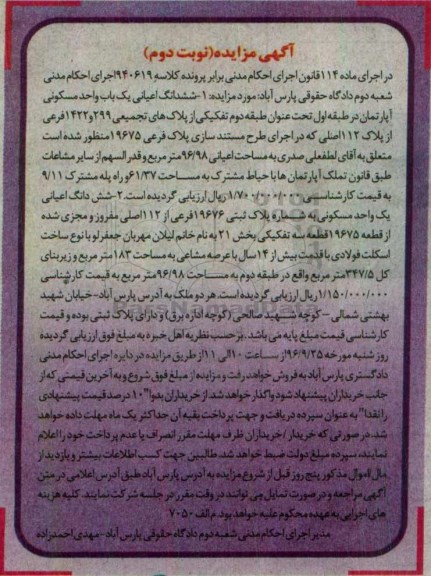 آگهی مزایده(نوبت دوم)
در اجرای ماده ۱۱۴ قانون اجرای احکام مدنی برابر پرونده کلاسه ۹۴۰۶۱۹ اجرای احکام مدنی
شعبه دوم دادگاه حقوقی پارس آباد: مورد مزایده: ۱-ششدانگ اعیانی یک باب واحد مسکونی
آپارتمان در طبقه اول تحت عنوان طبقه دوم تفکیکی از پلاک های تجمیعی ۲۹۹و۱۴۲۲ فرعی
از پلاک ۱۱۲اصلی که در اجرای طرح مستند سازی پلاک فرعی ۱۹۶۷۵ منظور شده است
متعلق به آقای لطفعلی صدری به مساحت اعیانی ۹۶/۹۸ متر مربع و قدر السهم از سایر مشاعات
طبق قانون تملک آپارتمان ها با حیاط مشترک به مساحت ۶۱/۳۷ و راه پله مشترک ۹/۱۱
به قیمت کارشناسی ۱/۷۰۰/۰۰۰/۰۰۰ ریال ارزیابی گردیده است. ۲-شش دانگ اعیانی
یک واحد مسکونی به شماره پلاک ثبتی ۱۹۶۷۶ فرعی از ۱۱۲ اصلی مفروز و مجزی شده
از قطعه ۱۹۶۷۵ قطعه سه تفکیکی بخش ۲۱ به نام خانم لیلان مهربان جعفرلو با نوع ساخت
اسکلت فولادی با قدمت بیش از ۱۴ سال با عرصه مشاعی به مساحت ۱۸۳ متر مربع و زیربنای
کل ۳۴۷/۵ متر مربع واقع در طبقه دوم به مساحت ۹۶/۹۸ متر مربع به قیمت کارشناسی
۱/۱۵۰/۰۰۰/۰۰۰ ریال ارزیابی گردیده است. هر دو ملک به آدرس پارس آباد-خیابان شهید
بهشتی شمالی - کوچه شهید صالحی (کوچه اداره برق) و دارای پلاک ثبتی بوده و قیمت
کارشناسی قیمت مبلغ پایه می باشد. بر حسب نظریه اهل خبره به مبلغ فوق ارزیابی گردیده
روز شنبه مورخه ۹۶/۹/۲۵ از ساعت ۱۰ الی ۱۱ از طریق مزایده در دایره اجرای احکام مدنی
دادگستری پارس آباد به فروش خواهد رفت و مزایده از مبلغ فوق شروع و به آخرین قیمتی که از
جانب خریداران پیشنهاد شود واگذار خواهد شد. از خریداران بدوا" ۱۰ درصد قیمت پیشنهادی
را نقدا" به عنوان سپرده دریافت و جهت پرداخت بقیه آن حداکثر یک ماه مهلت داده خواهد
شد. در صورتی که خریدار / خریداران ظرف مهلت مقرر انصراف یا عدم پرداخت خود را اعلام
نمایند، سپرده مبلغ دولت ضبط خواهد شد. طالبین جهت کسب اطلاعات بیشتر و بازدید از
مال /اموال مذکور پنج روز قبل از شروع مزایده به آدرس پارس آباد طبق آدرس اعلامی در متن
آگهی مراجعه و در صورت تمایل می توانند در وقت مقرر در جلسه شرکت نمایند. کلیه هزینه
های اجرایی به عهده محکوم علیه خواهد بود. م الف ۷۰۵۰
مدیر اجرای احکام مدنی شعبه دوم دادگاه حقوقی پارس آباد-مهدی احمدزاده